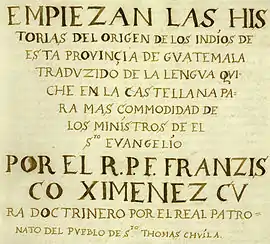 EMPIEZAN LAS HIS
TORIAS DEL ORIGEN DE LOS INDIOS DE
ESTA PROVINÇIA DE GUATEMALA
TRADUZIDO DE LA LENGUA QUI
CHE EN LA CASTELLANA PA
RA MAS COMMODIDAD DE
LOS MINISTROS DE EL
S.TO EVANGELIO
POR EL R.P.F. FRANZIS
CO XIMENEZ CU
RA DOCTRINERO POR EL REAL PATRO
NATO DEL PUEBLO DE S.TO THOMAS CHUILA.